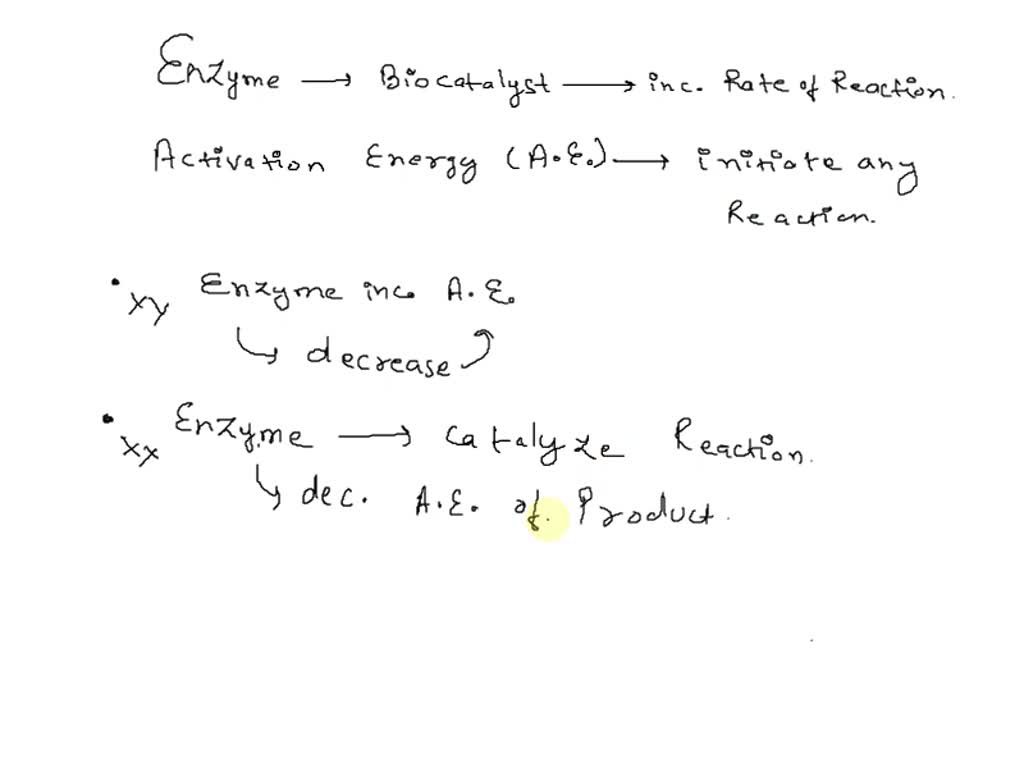 Enzyme → Biocatalyst → inc. Rate of Reaction.
Activation Energy (A.E.) → initiate any
Reaction.
• xy Enzyme inc. A.E.
↳ decrease
• xx Enzyme → catalyze Reaction.
↳ dec. A.E. of Product.